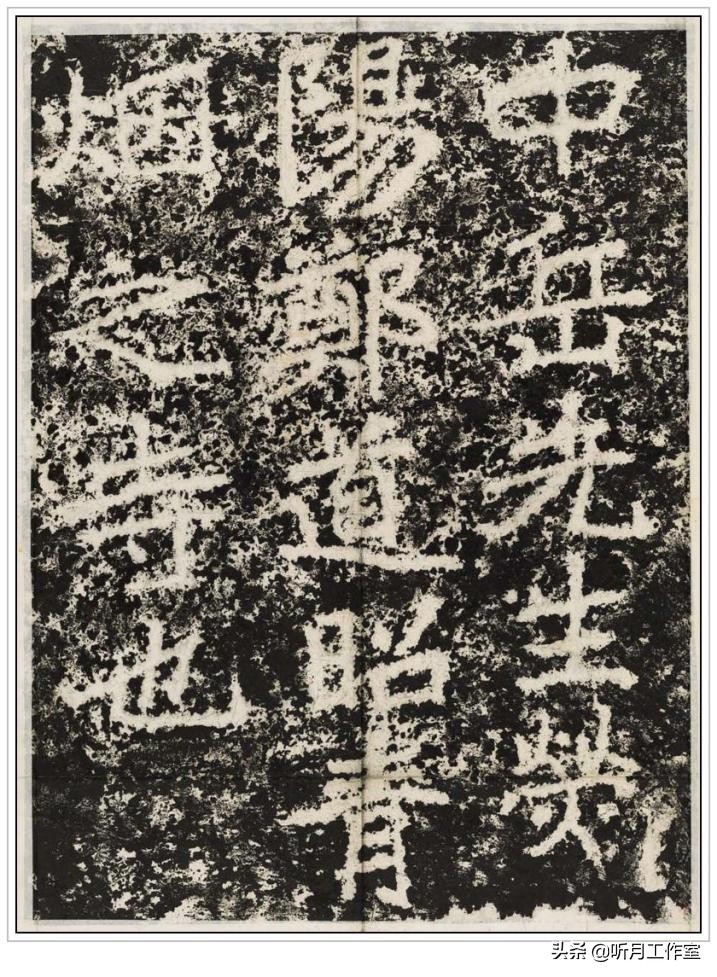 中岳先生熒
陽鄭道昭青
烟之寺也
头条 @听月工作室